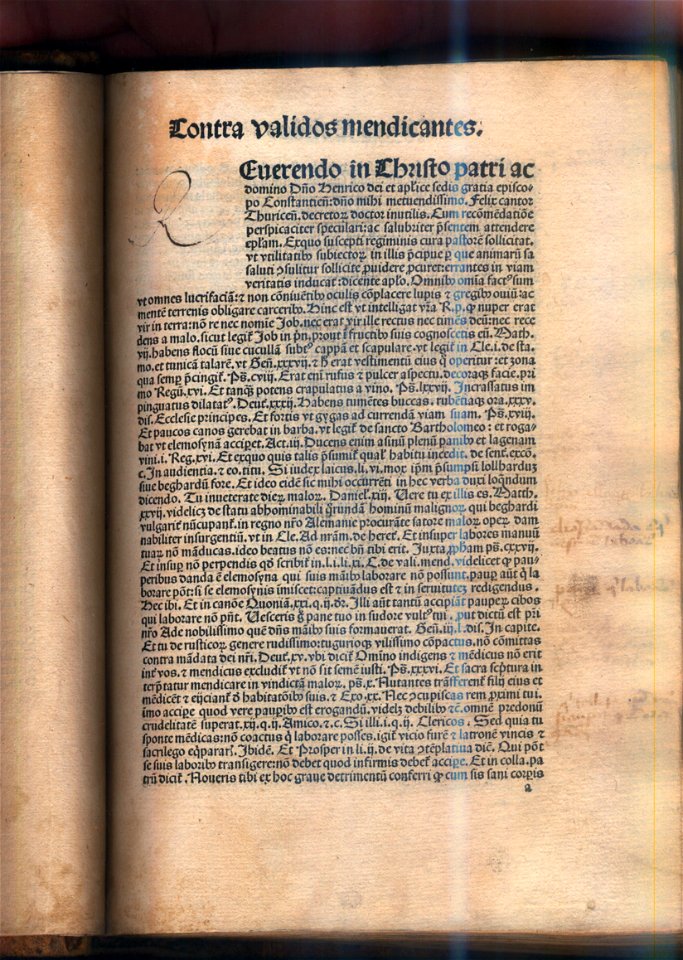 Contra validos mendicantes.
R
Euerendo in Christo patri ac
domino Dño Henrico dei et aplice sedis gratia episco-
po Constantieñ: dño mihi metuendissimo. Felix cantor
Thuriceñ. decretoꝝ doctor inutilis. Cum recõmẽdatiõe
perspicaciter speculari: ac salubriter p̃sentem attendere
ep̃lam. Exquo suscepti regiminis cura pastorẽ sollicitat.
vt vtilitatibꝰ subiectoꝝ in illis p̃cipue per que animarũ sa
saluti ꝯsulitur sollicite ꝓuidere ꝓcuret: errantes in viam
veritatis inducat: dicente aplo. Omnibꝰ om̃ia factꝰ sum
vt omnes lucrifaciã: ⁊ non cõniuẽtibꝰ oculis cõplacere lupis ⁊ gregibꝰ ouiũ: ac
mentẽ terrenis obligare carceribꝰ. Hinc est vt intelligat vr̃a R. p. ꝙ nuper erat
vir in terra: nõ re nec nomine Job. nec erat vir ille rectus nec timẽs deũ: nec rece
dens a malo. sicut legit̃ Job in pñ. prout fructibꝰ suis cognoscetis eũ. Math.
vij. habens flocũ siue cucullã subtꝰ cappã et scapulare. vt legit̃ in Cle. i. de sta-
mo. et tunicã talarẽ. vt Geñ. xxxvij. ⁊ h̃ erat vestimentũ eiꝰ q̃ operitur: et zona
qua semꝑ p̃cingit̃. Ps̃. cviij. Erat eni rufus ⁊ pulcer aspectu. decoraqꝫ facie. pri
mo Regũ. xvi. Et tanqꝫ potens crapulatus a vino. Ps̃. lxxvij. Incrassatus im
pinguatus dilatatꝰ. Deut̃. xxxij. Habens tumẽtes buccas. rubẽtiaqꝫ ora. xxxv.
dis. Ecclesie principes. Et fortis vt gygas ad currendã viam suam. Ps̃. xviij.
Et paucos canos gerebat in barba. vt legit̃ de sancto Bartholomeo: et roga-
bat vt elemosynã acciperet. Act. iij. Ducens enim asinũ plenũ panibꝰ et lagenam
vini. i. Reg. xvi. Et exquo quis talis p̃sumit̃ qual̃ habitu incedit. de sent̃. excõ.
c. In audientia. ⁊ eo. titu. Si iudex laicus. li. vi. mox ip̃m p̃sumpsi lollhardũ
siue beghardũ fore. Et ideo eidẽ sic mihi occurrẽti in hec verba duxi loq̃ndum
dicendo. Tu inueterate dieꝝ maloꝝ. Daniel̃. xiij. Uere tu ex illis es. Matth.
xxvij. videlicꝫ de statu abhominabili q̃rundã hominũ malignoꝝ qui beghardi
vulgarit̃ nũcupant̃. in regno nr̃o Alemanie procurãte satore maloꝝ operꝫ dam
nabiliter insurgentiũ. vt in Cle. Ad nr̃am. de heret̃. Et insuper labores manuũ
tuaꝝ nõ mãducas. ideo beatus nõ es: nec bñ tibi erit. Juxta ꝓp̃ham ps̃. cxxvij.
Et insuꝑ nõ perpendis qđ scribit̃ in. l. i. li. xi. C. de vali. mend. videlicet ꝙ pau-
peribus danda ẽ elemosyna qui suis maibꝰ laborare nõ possunt. pauꝑ aut̃ q̃ la
borare põt: ñ se elemosynis imiscet: captiuãdus est ⁊ in seruitutẽ redigendus.
Hec ibi. Et in canõe Quoniã. xxi. q. ij. dr̃. Illi aut̃ tantũ accipiãt pauperes cibos
qui laborare nõ pñt. Uesceris g̃ pane tuo in sudore vultꝰ tui. put dictũ est pri
nr̃o Ade nobilissimo quẽ dñs maibꝰ suis formauerat. Geñ. iij. l. dis. In capite.
Et tu de rusticoꝝ genere rudissimo: tugurioqꝫ vilissimo cõpactus. nõ cõmittas
contra mãdata dei nr̃i. Deut̃. xv. vbi dicit̃ Omino indigens ⁊ mẽdicus nõ erit
int̃ vos. ⁊ mendicus excludit̃ vt nõ sit semẽ iusti. Ps̃. xxxvi. Et sacra sc̃ptura in
terp̃tatur mendicare in vindictã maloꝝ. ps̃. x. Nutantes trãsferent̃ filij eius et
mẽdicẽt ⁊ eijciant̃ đ habitatõibꝰ suis. ⁊ Exo. xx. Nec ꝯcupiscas rem ꝓximi tui.
imo accipe quod vere pauꝑibꝰ est erogandũ. videlꝫ debilibꝰ ⁊c̃. omnẽ predonũ
crudelitatẽ superat. xij. q. ij. Amico. ⁊. c. Si illi. i. q. ij. Clericos. Sed quia tu
sponte mẽdicas: nõ coactus q̃ laborare posses. igit̃ vicio furẽ ⁊ latronẽ vincis ⁊
sacrilego eq̃pararꝭ. Ibidẽ. Et Prosper in li. ij. de vita ꝯtẽplatiua diẽ. Qui põt
se suis laboribꝰ transigere: nõ debet quod infirmis debet̃ accipe. Et in colla. pa
trũ dicit̃. Noueris tibi ex hoc graue detrimentũ conferri ꝙ cum sis sani corpis
a